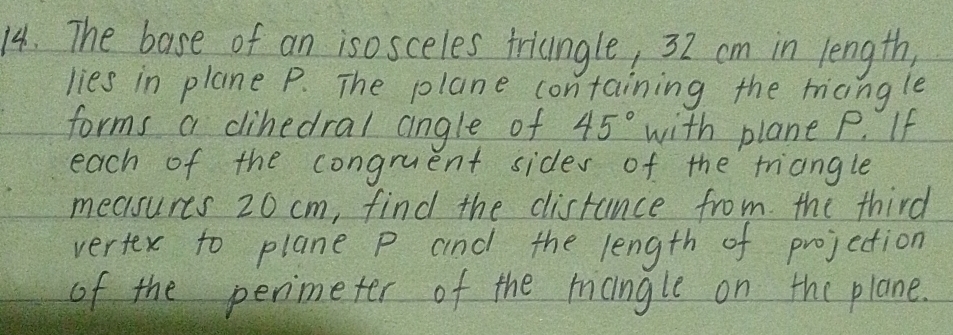 14. The base of an isosceles triangle, 32 cm in length,
lies in plane P. The plane containing the triangle
forms a dihedral angle of 45° with plane P. If
each of the congruent sides of the triangle
measures 20 cm, find the distance from the third
vertex to plane P and the length of projection
of the perimeter of the triangle on the plane.